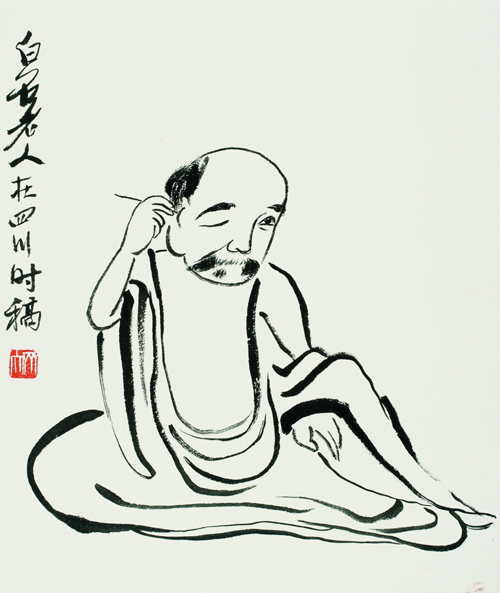 白石老人在四川时稿